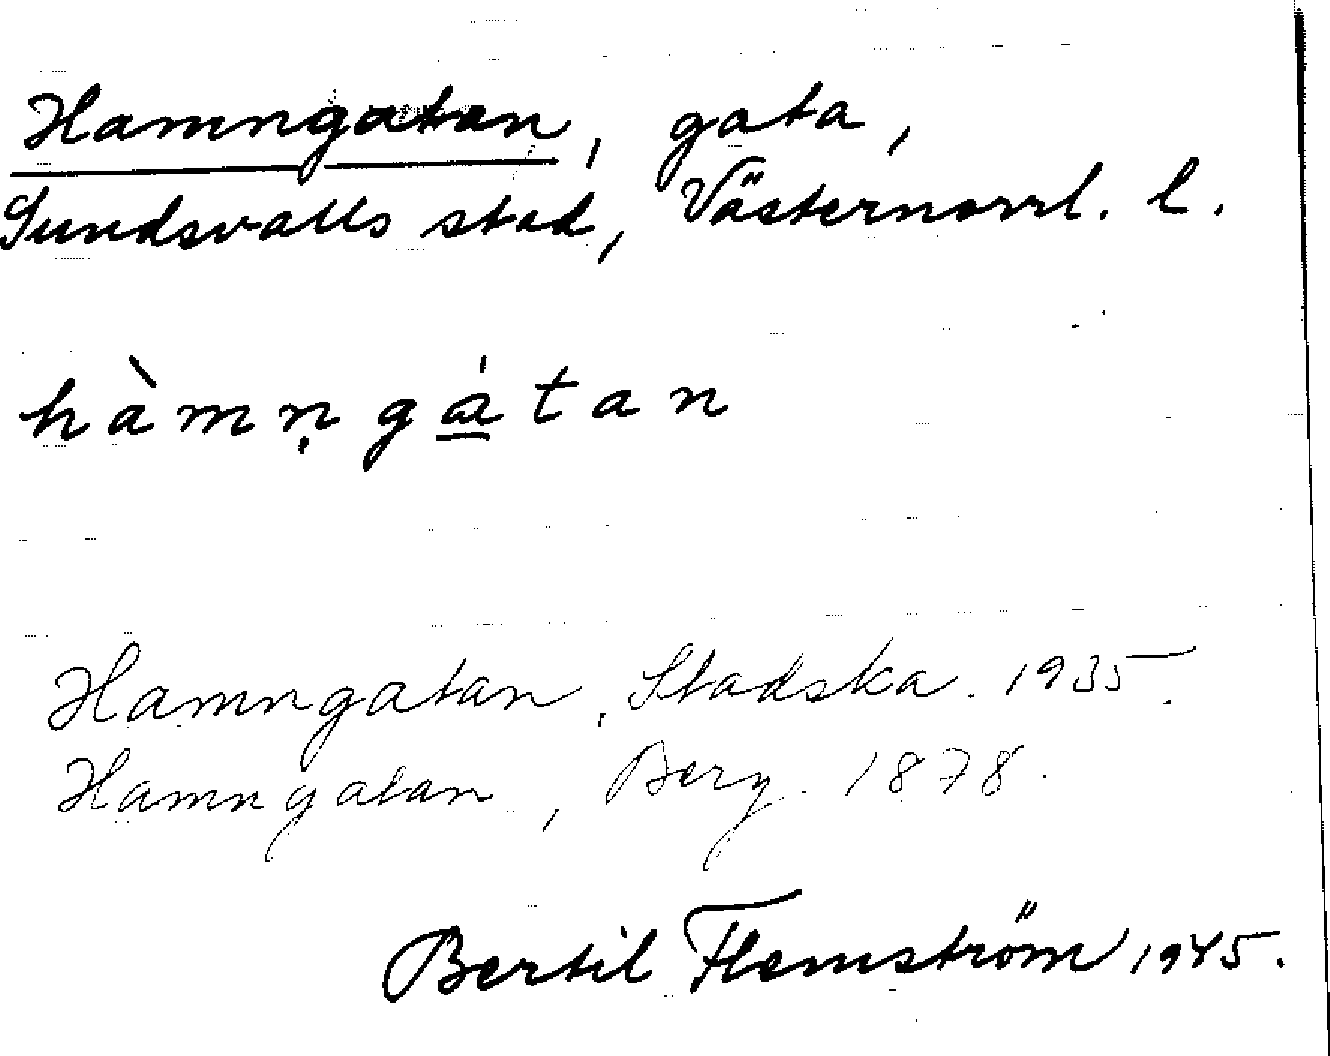 Hamngatan, gata,
Sundsvalls stad, Västernorrl. l.
hàmṇga̲̍tan
Hamngatan, Stadska. 1935.
Hamngatan, Berg. 1878.
Bertil Flemström 1945.